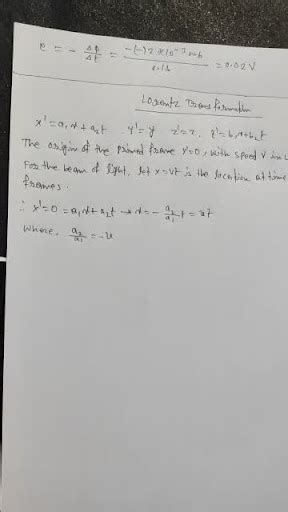 e = - Δϕ/Δt = -(-)2×10⁻³ wb / 0.1s = 0.02 V
Lorentz Transformation
x' = a₁x + a₂t y' = y z' = z, t' = b₁x + b₂t
The origin of the primed frame x'=0, with speed v in
For the beam of light, let x = vt is the location at time
frames.
∴ x' = 0 = a₁x + a₂t → x = - a₂/a₁ t = vt
Where, a₂/a₁ = -v